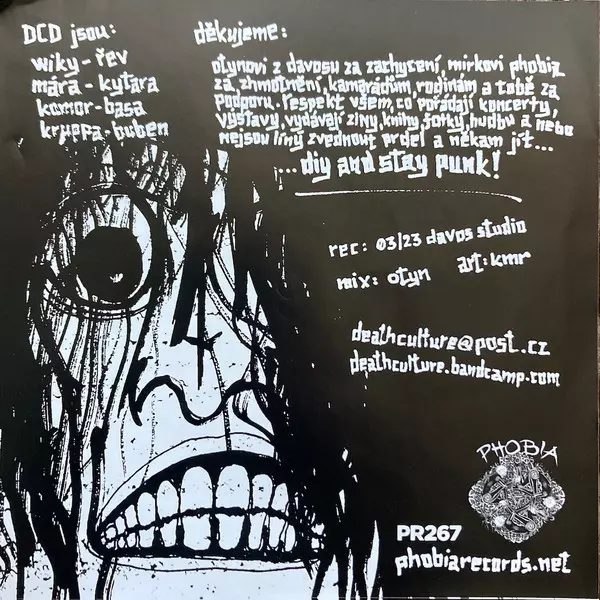 DCD jsou:
wiky - řev
mára - kytara
komor - basa
kruppa - buben
děkujeme:
otynovi z davosu za zachycení, mirkovi phobia
za zhmotnění, kamarádům, rodinám a tobě za
podporu. respekt všem, co pořádají koncerty,
výstavy, vydávají ziny, knihy, fotky, hudbu a nebo
nejsou líný zvednout prdel a někam jít...
...diy and stay punk!
rec: 03/23 davos studio
mix: otyn art: kmr
deathculture@post.cz
deathculture.bandcamp.com
PHOBIA
RECORDS
PR267
phobiarecords.net